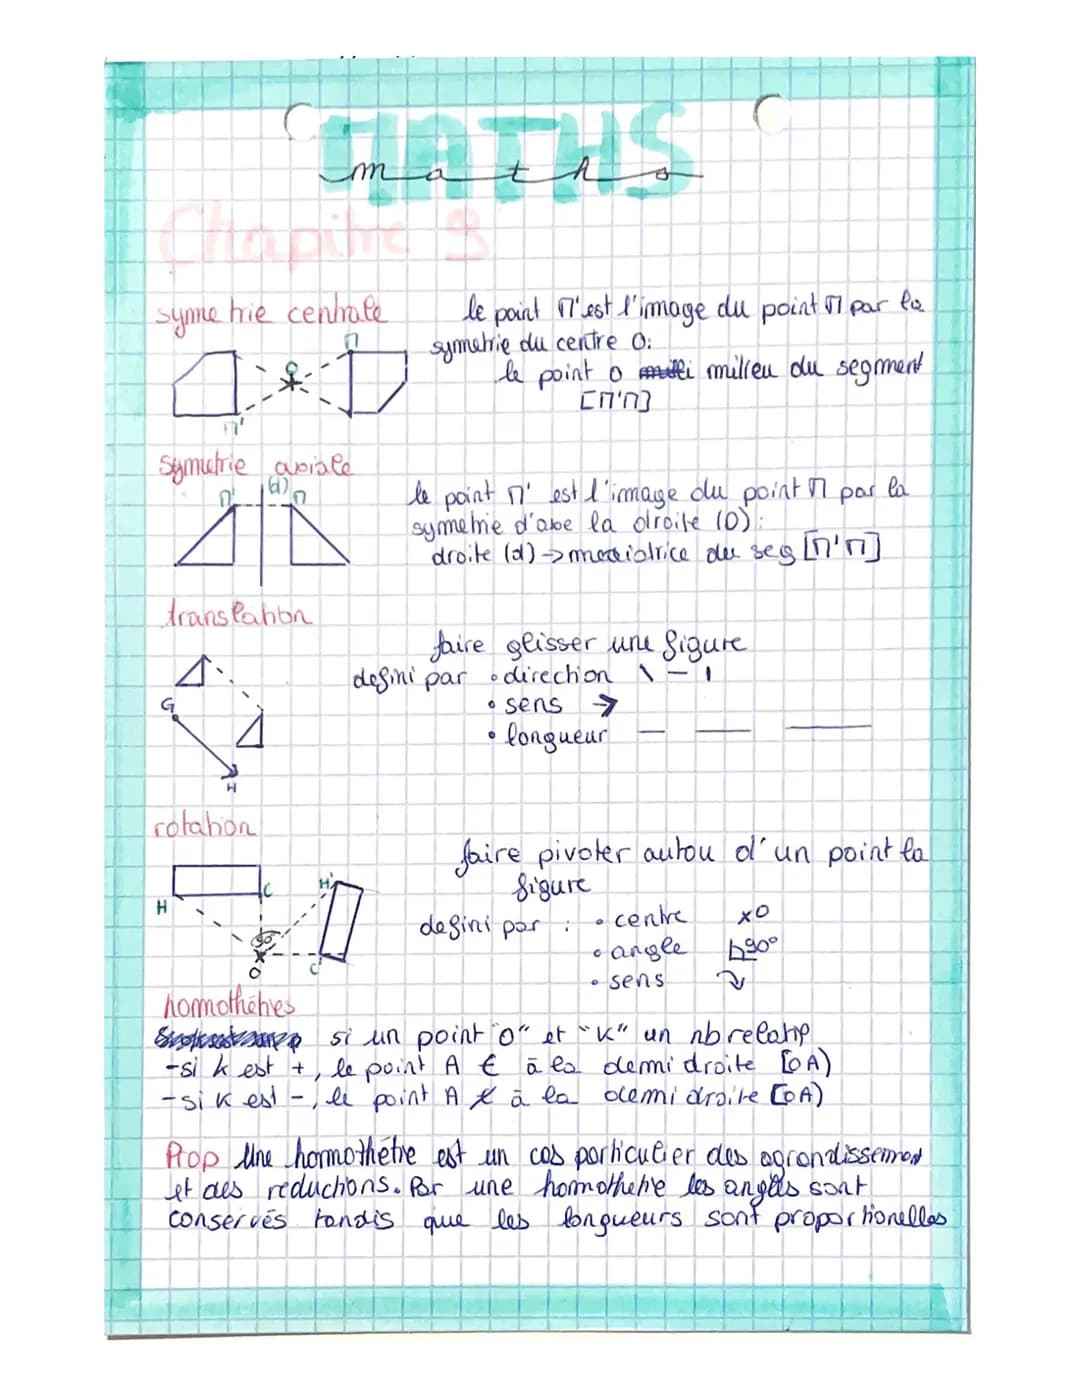 MATHS
maths
Chapitre 9
symetrie centrale
le point M' est l'image du point M par la
symetrie du centre O:
le point O milieu du segment
[M'M]
M
O
M'
Symetrie axiale
(d)
M' M
le point M' est l'image du point M par la
symetrie d'axe la droite (D):
droite (d) → mediatrice du seg [M'M]
translation
faire glisser une figure
defini par • direction \ — |
• sens →
• longueur — — —
G
H
rotation
faire pivoter autou d'un point la
figure
defini par : • centre xO
• angle 90°
• sens
H C H'
90°
O C'
homothéties
si un point "O" et "K" un nb relatif
-si k est +, le point A € à la demi droite [OA)
-si K est -, le point A ∉ à la demi droite [OA)
Prop Une homothétie est un cas particulier des agrandissement
et des réductions. Par une homothetie les angles sont
conservés tandis que les longueurs sont proportionelles